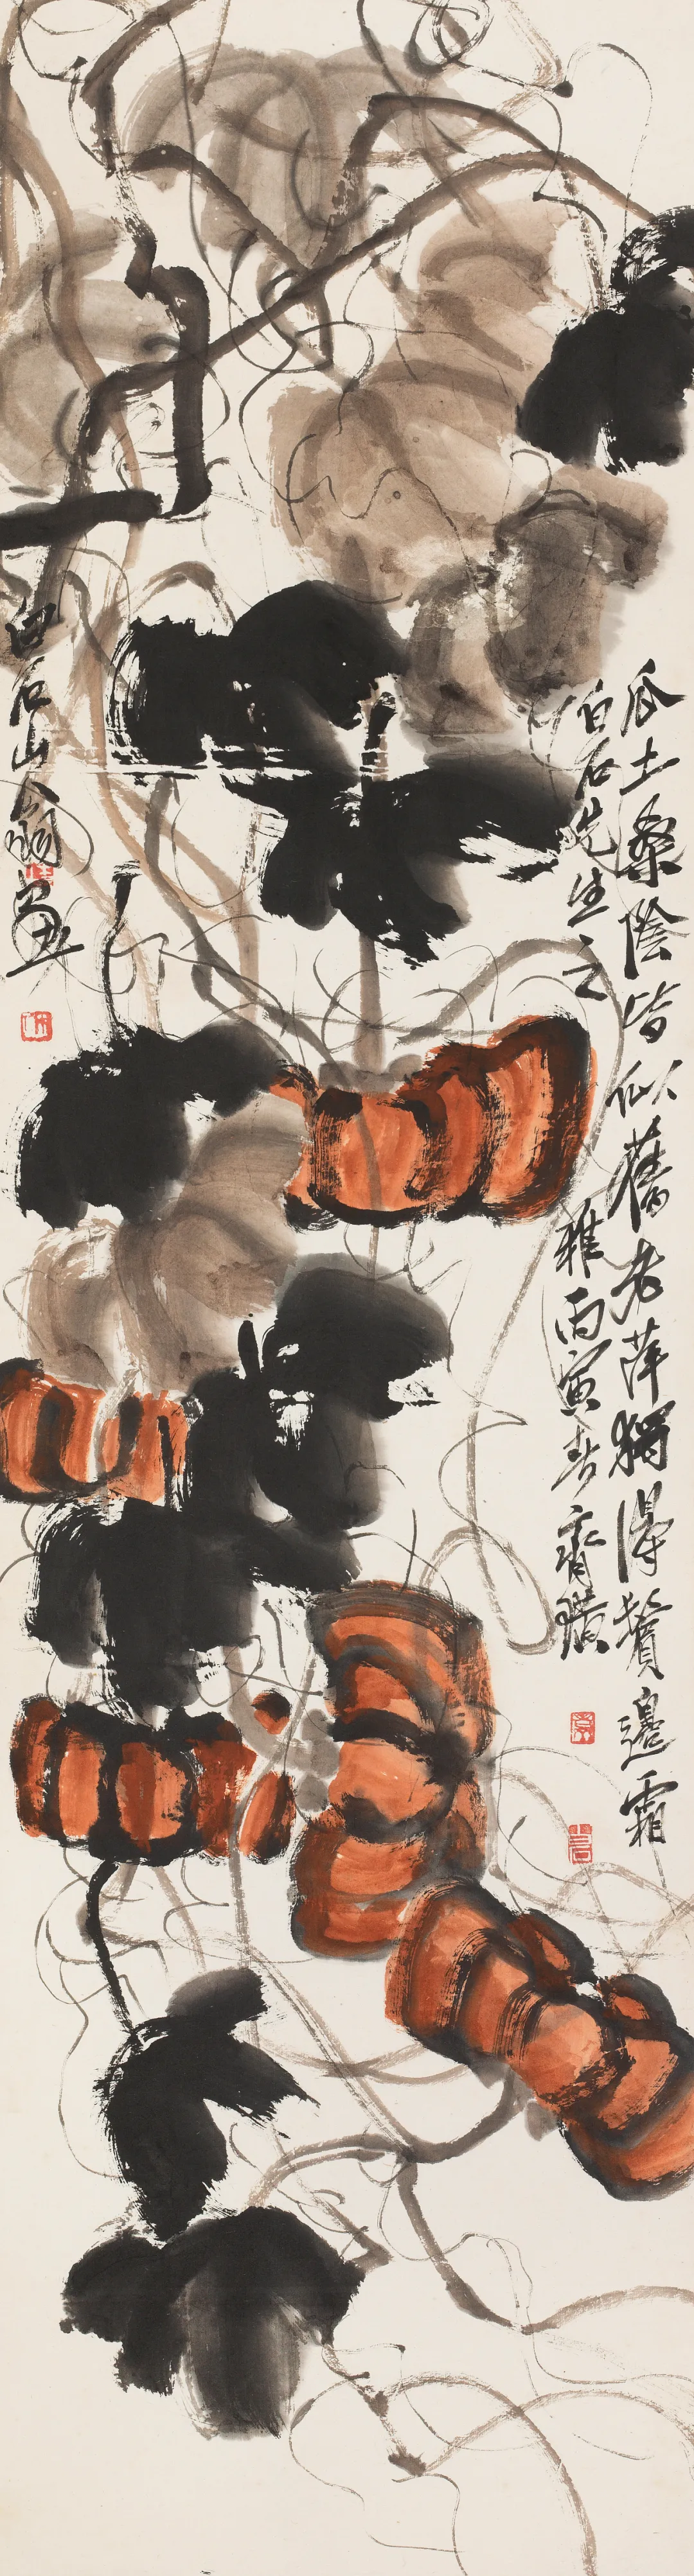 瓜土桑陰皆似舊老萍獨得鬢邊霜
伯石先生之
雅丙寅春齊璜
白石山翁畫